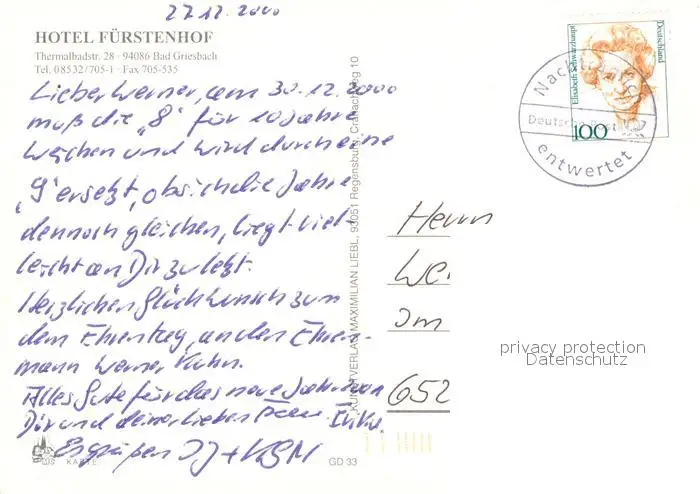 27.12.2000
HOTEL FÜRSTENHOF
Thermalbadstr. 28 - 94086 Bad Griesbach
Tel. 08532/705-1 - Fax 705-535
Lieber Werner, am 30.12.2000
muß die "8" für 10 Jahre
weichen und wird durch eine
"9" ersetzt, ob sich die Jahre
dennoch gleichen, liegt viel-
leicht an Dir zuletzt.
Herzlichen Glückwunsch zum
dem Ehrentag, an den Ehren-
mann Werner Kuhn.
Alles Gute für das neue Jahr von
Dir und deiner lieben Frau
Es grüßen
KARTE
GD 33
KUNSTVERLAG MAXIMILIAN LIEBL, 93051 Regensburg, Cranachweg 10
Elisabeth Schwarzhaupt
Deutschland
100
Deutsche Post
entwertet
Herrn
We
Im
652
privacy protection
Datenschutz